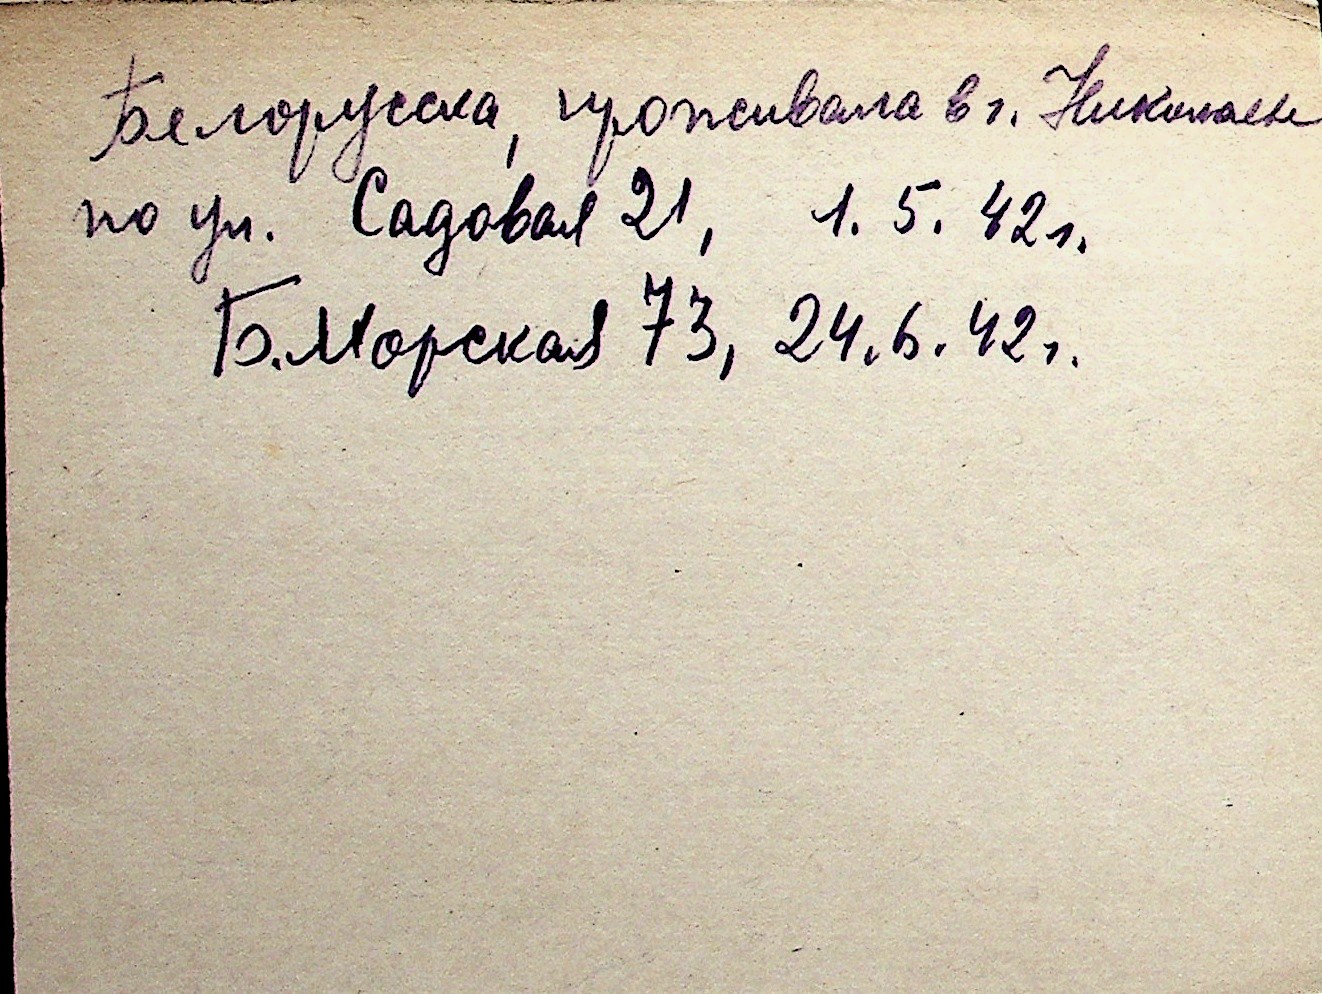 Белорусска, проживала в г. Николаеве
по ул. Садовая 21, 1.5.42г.
Б.Морская 73, 24.6.42г.